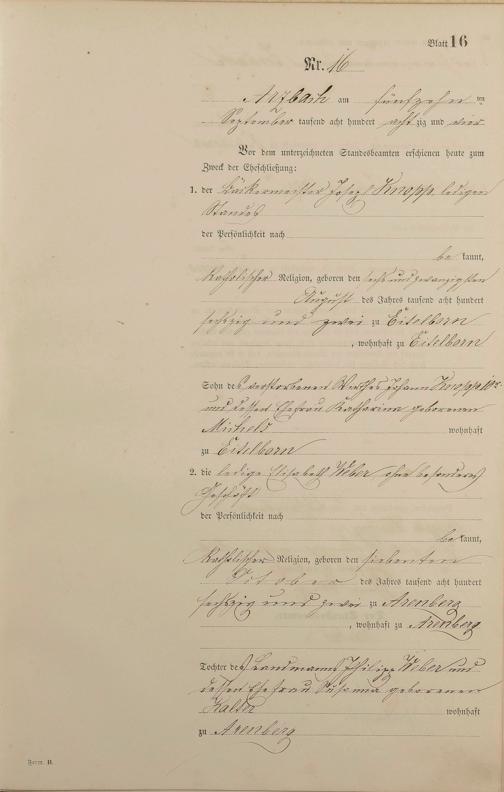 Blatt 16
Nr. 16
Arzbach am fünfzehn ten
September tausend acht hundert acht zig und vier
Vor dem unterzeichneten Standesbeamten erschienen heute zum
Zweck der Eheschließung:
1. der Bäckermeister Joseph Knopp, ledigen
Standes
der Persönlichkeit nach
be kannt,
katholischer Religion, geboren den sechs und zwanzigsten
August des Jahres tausend acht hundert
sechzig und zwei zu Eitelborn
, wohnhaft zu Eitelborn
Sohn des verstorbenen Wirthes Johann Knopp
und dessen Ehefrau Katharina geborenen
Michels wohnhaft
zu Eitelborn
2. die ledige Elisabeth Weber, ohne besonderes
Geschäft
der Persönlichkeit nach
be kannt,
katholischer Religion, geboren den siebenten
October des Jahres tausend acht hundert
sechzig und zwei zu Arenberg
, wohnhaft zu Arenberg
Tochter des Landmanns Philipp Weber und
dessen Ehefrau Susanna geborenen
wohnhaft
zu Arenberg
Form. B.